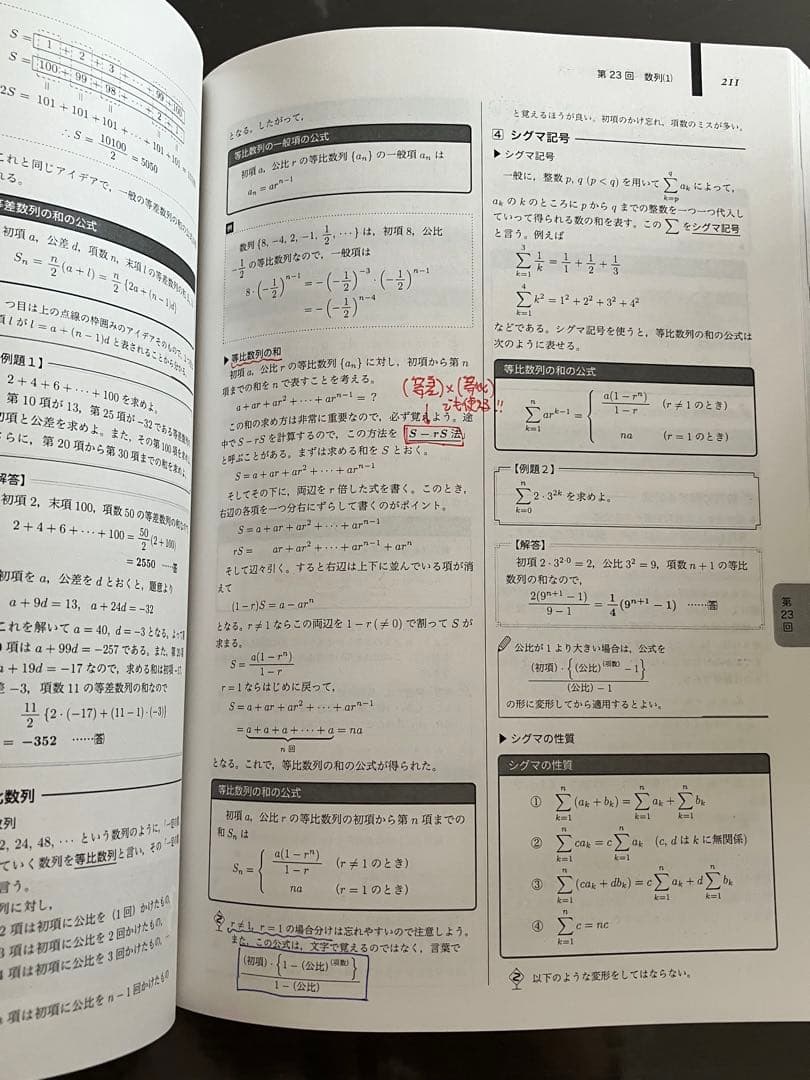 S=
1 + 2 + 3 + ⋯ + 99 + 100
S=
100 + 99 + 98 + ⋯ + 2 + 1
2S = 101 + 101 + 101 + ⋯ + 101 + 101
∴ S = 10100/2 = 5050
これと同じアイデアで，一般の等差数列の
等差数列の和の公式
初項 a，公差 d，項数 n，末項 l の等差数列の
Sₙ = n/2 (a+l) = n/2 {2a+(n−1)d}
つ目は上の点線の枠囲みのアイデアそのもので，
l が l = a + (n−1)d と表されることから分かる。
例題1】
2 + 4 + 6 + ⋯ + 100 を求めよ。
第10項が13，第25項が−32である等差数列の
初項と公差を求めよ。また，その第100項を求め
さらに，第20項から第30項までの和を求め
解答】
初項2，末項100，項数50の等差数列の和なので
2 + 4 + 6 + ⋯ + 100 = 50/2 (2+100)
= 2550 ……答
初項を a，公差を d とおくと，題意より
a + 9d = 13, a + 24d = −32
これを解いて a = 40, d = −3 となる。よって第
項は a + 99d = −257 である。また，第20項
a + 19d = −17 なので，求める和は初項 −17，
差 −3，項数11の等差数列の和なので
11/2 {2・(−17)+(11−1)・(−3)}
= −352 ……答
比数列
数列
2, 24, 48, ⋯ という数列のように，
ていく数列を等比数列と言い，その
言う。
列に対し，
2項は初項に公比を（1回）かけたもの，
3項は初項に公比を2回かけたもの，
4項は初項に公比を3回かけたもの，
項は初項に公比を n−1 回かけたもの
第23回 数列(1) 211
となる。したがって，
等比数列の一般項の公式
初項 a，公比 r の等比数列 {aₙ} の一般項 aₙ は
aₙ = arⁿ⁻¹
例
数列 {8, −4, 2, −1, 1/2, ⋯} は，初項8，公比
−1/2 の等比数列なので，一般項は
8・(−1/2)ⁿ⁻¹ = −(−1/2)⁻³・(−1/2)ⁿ⁻¹
= −(−1/2)ⁿ⁻⁴
▶等比数列の和
初項 a，公比 r の等比数列 {aₙ} に対し，初項から第 n
項までの和を n で表すことを考える。
(等差)×(等比)
でも使える!!
a + ar + ar² + ⋯ + arⁿ⁻¹ = ?
この和の求め方は非常に重要なので，必ず覚えよう。途
中で S − rS を計算するので，この方法を S − rS 法
と呼ぶことがある。まずは求める和を S とおく。
S = a + ar + ar² + ⋯ + arⁿ⁻¹
そしてその下に，両辺を r 倍した式を書く。このとき，
右辺の各項を一つ分右にずらして書くのがポイント。
S = a + ar + ar² + ⋯ + arⁿ⁻¹
rS = ar + ar² + ⋯ + arⁿ⁻¹ + arⁿ
そして辺々引く。すると右辺は上下に並んでいる項が消
えて
(1−r)S = a − arⁿ
となる。r ≠ 1 ならこの両辺を 1 − r (≠ 0) で割って S が
求まる。
S = a(1−rⁿ)/1−r
r = 1 ならはじめに戻って，
S = a + ar + ar² + ⋯ + arⁿ⁻¹
= a + a + a + ⋯ + a = na
n 回
となる。これで，等比数列の和の公式が得られた。
等比数列の和の公式
初項 a，公比 r の等比数列の初項から第 n 項までの
和 Sₙ は
Sₙ = { a(1−rⁿ)/1−r (r ≠ 1 のとき)
na (r = 1 のとき)
r ≠ 1, r = 1 の場合分けは忘れやすいので注意しよう。
また，この公式は，文字で覚えるのではなく，言葉で
(初項)・{1−(公比)^(項数)}/1−(公比)
と覚えるほうが良い。初項のかけ忘れ，項数のミスが多い。
4 シグマ記号
▶シグマ記号
一般に，整数 p, q (p < q) を用いて ∑[k=p, q] aₖ によって，
aₖ の k のところに p から q までの整数を一つ一つ代入し
ていって得られる数の和を表す。この ∑ をシグマ記号
と言う。例えば
∑[k=1, 3] 1/k = 1/1 + 1/2 + 1/3
∑[k=1, 4] k² = 1² + 2² + 3² + 4²
などである。シグマ記号を使うと，等比数列の和の公式は
次のように表せる。
等比数列の和の公式
∑[k=1, n] arᵏ⁻¹ = { a(1−rⁿ)/1−r (r ≠ 1 のとき)
na (r = 1 のとき)
【例題2】
∑[k=0, n] 2・3²ᵏ を求めよ。
【解答】
初項 2・3²·⁰ = 2，公比 3² = 9，項数 n + 1 の等比
数列の和なので，
2(9ⁿ⁺¹ − 1)/9 − 1 = 1/4 (9ⁿ⁺¹ − 1) ……答
公比が1より大きい場合は，公式を
(初項)・{(公比)^(項数) − 1}/(公比) − 1
の形に変形してから適用するとよい。
▶シグマの性質
シグマの性質
① ∑[k=1, n] (aₖ + bₖ) = ∑[k=1, n] aₖ + ∑[k=1, n] bₖ
② ∑[k=1, n] caₖ = c ∑[k=1, n] aₖ (c, d は k に無関係)
③ ∑[k=1, n] (caₖ + dbₖ) = c ∑[k=1, n] aₖ + d ∑[k=1, n] bₖ
④ ∑[k=1, n] c = nc
以下のような変形をしてはならない。
第23回